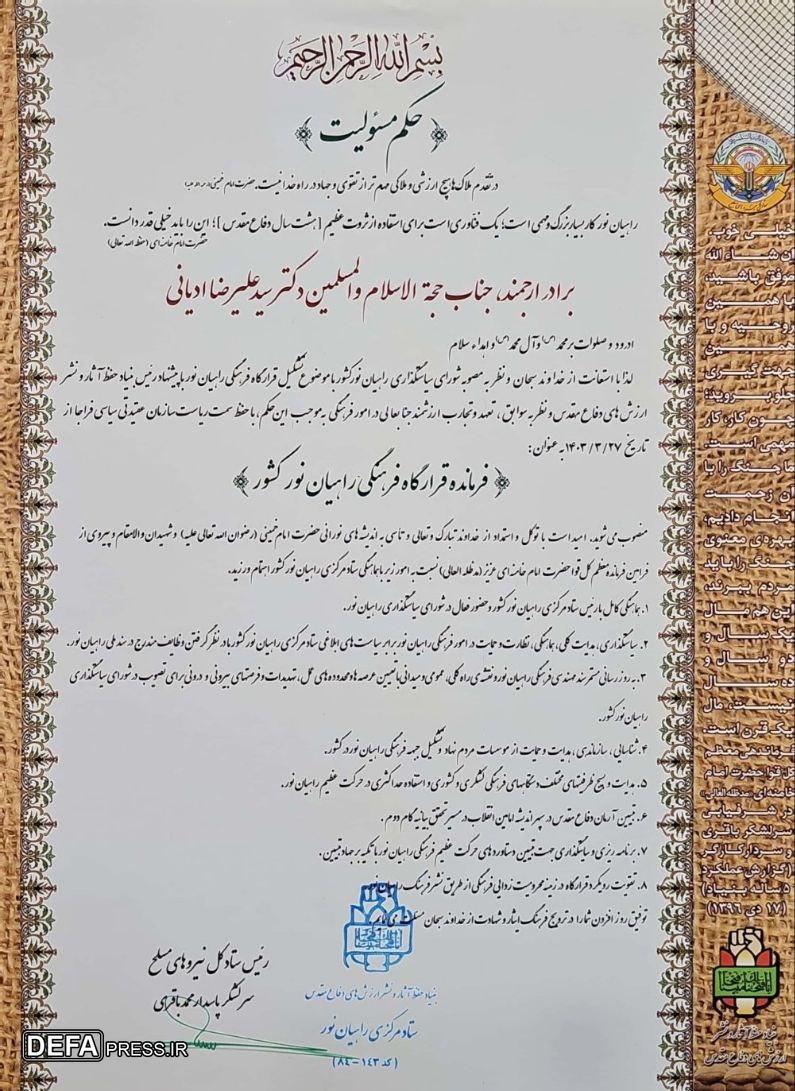 بسم الله الرحمن الرحیم
حکم مسئولیت
در تقدم ملاک‌ها هیچ ارزشی و ملاکی مهم تر از تقوی و جهاد در راه خدا نیست. حضرت امام خمینی
راهیان نور کار بسیار بزرگ و مهمی است؛ یک فناوری است برای استفاده از ثروت عظیم [هشت سال دفاع مقدس]؛ این را باید خیلی قدر دانست.
حضرت امام خامنه‌ای (حفظ الله تعالی)
برادر ارجمند، جناب حجة الاسلام والمسلمین دکتر سید علیرضا ادیانی
درود و صلوات بر محمد (ص) و آل محمد (ص) و اهداء سلام
لذا با استعانت از خداوند سبحان و نظر به مصوبه شورای سیاستگذاری راهیان نور کشور با موضوع تشکیل قرارگاه فرهنگی راهیان نور با پیشنهاد رئیس بنیاد حفظ آثار و نشر
ارزش های دفاع مقدس و نظر به سوابق، تعهد و تجارب ارزشمند جنابعالی در امور فرهنگی به موجب این حکم، با حفظ سمت ریاست سازمان عقیدتی سیاسی فراجا از
تاریخ ۱۴۰۳/۳/۲۷ به عنوان:
فرمانده قرارگاه فرهنگی راهیان نور کشور
منصوب می شوید. امید است با توکل و استمداد از خداوند تبارک و تعالی و تاسی به اندیشه های نورانی حضرت امام خمینی (رضوان الله تعالی علیه) و شهیدان والامقام و پیروی از
فرامین فرمانده معظم کل قوا حضرت امام خامنه ای عزیز (مدظله العالی) نسبت به امور زیر با هماهنگی ستاد مرکزی راهیان نور کشور اهتمام ورزید.
۱. هماهنگی کامل با رئیس ستاد مرکزی راهیان نور کشور و حضور فعال در شورای سیاستگذاری راهیان نور.
۲. سیاستگذاری، هدایت کلی، هماهنگی، نظارت و حمایت در امور فرهنگی راهیان نور برابر سیاست های ابلاغی ستاد مرکزی راهیان نور کشور با در نظر گرفتن وظایف مندرج در سند ملی راهیان نور.
۳. به روز رسانی مستمر سند مهندسی فرهنگی راهیان نور و نقشه ی راه کلی، عمومی و میدانی با تعیین عرصه ها و محدوده های عمل، تهدیدات و فرصتهای بیرونی و درونی برای تصویب در شورای سیاستگذاری
راهیان نور کشور.
۴. شناسایی، سازماندهی، هدایت و حمایت از موسسات مردم نهاد و تشکیل جبهه فرهنگی راهیان نور در کشور.
۵. هدایت و بسیج ظرفیتهای مختلف دستگاههای فرهنگی لشکری و کشوری و استفاده حداکثری در حرکت عظیم راهیان نور.
۶. تبیین آرمان دفاع مقدس در سپهر اندیشه امامین انقلاب در مسیر تحقق بیانیه گام دوم.
۷. برنامه ریزی و سیاستگذاری جهت تبیین دستاوردهای حرکت عظیم فرهنگی راهیان نور با تکیه بر جهاد تبیین.
۸. تقویت رویکرد قرارگاه در زمینه محرومیت زدایی فرهنگی از طریق نشر فرهنگ راهیان نور.
توفیق روز افزون شما را در ترویج فرهنگ ایثار و شهادت از خداوند سبحان مسئلت می نمایم.
رئیس ستاد کل نیروهای مسلح
سرلشکر پاسدار محمد باقری
بنیاد حفظ آثار و نشر ارزش های دفاع مقدس
ستاد مرکزی راهیان نور
(کد ۱۴۳-۸۴)
خیلی خوب،
ان شاء الله
موفق باشید،
با همین
روحیه و با
همین
جهت گیری
جلو بروید؛
چون کار، کار
مهمی است.
ما جنگ را با
آن زحمت
انجام دادیم،
بهره‌ی معنوی
جنگ را باید
مردم ببرند،
این هم مال
یک سال و
دو سال و
ده سال
نیست، مال
یک قرن است.
فرماندهی معظم
کل قوا حضرت امام
خامنه‌ای «مدظله العالی»
در شرفیابی
سرلشکر باقری
و سردار کارگر
(گزارش عملکرد
۵ ساله بنیاد)
(۱۷ دی ۱۳۹۶)
انا فتحنا لک فتحا مبینا
بنیاد حفظ آثار و نشر
ارزش های دفاع مقدس
DEFAPRESS.IR